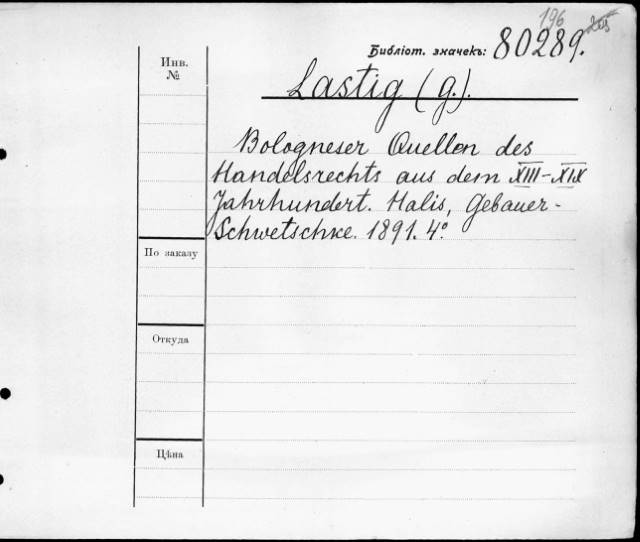 196
Библіот. значекъ: 80289.
Инв.
№
Lastig (G.).
Bologneser Quellen des
Handelsrechts aus dem XIII-XIX
Jahrhundert. Halis, Gebauer-
Schwetschke. 1891. 4°.
По заказу
Откуда
Цѣна